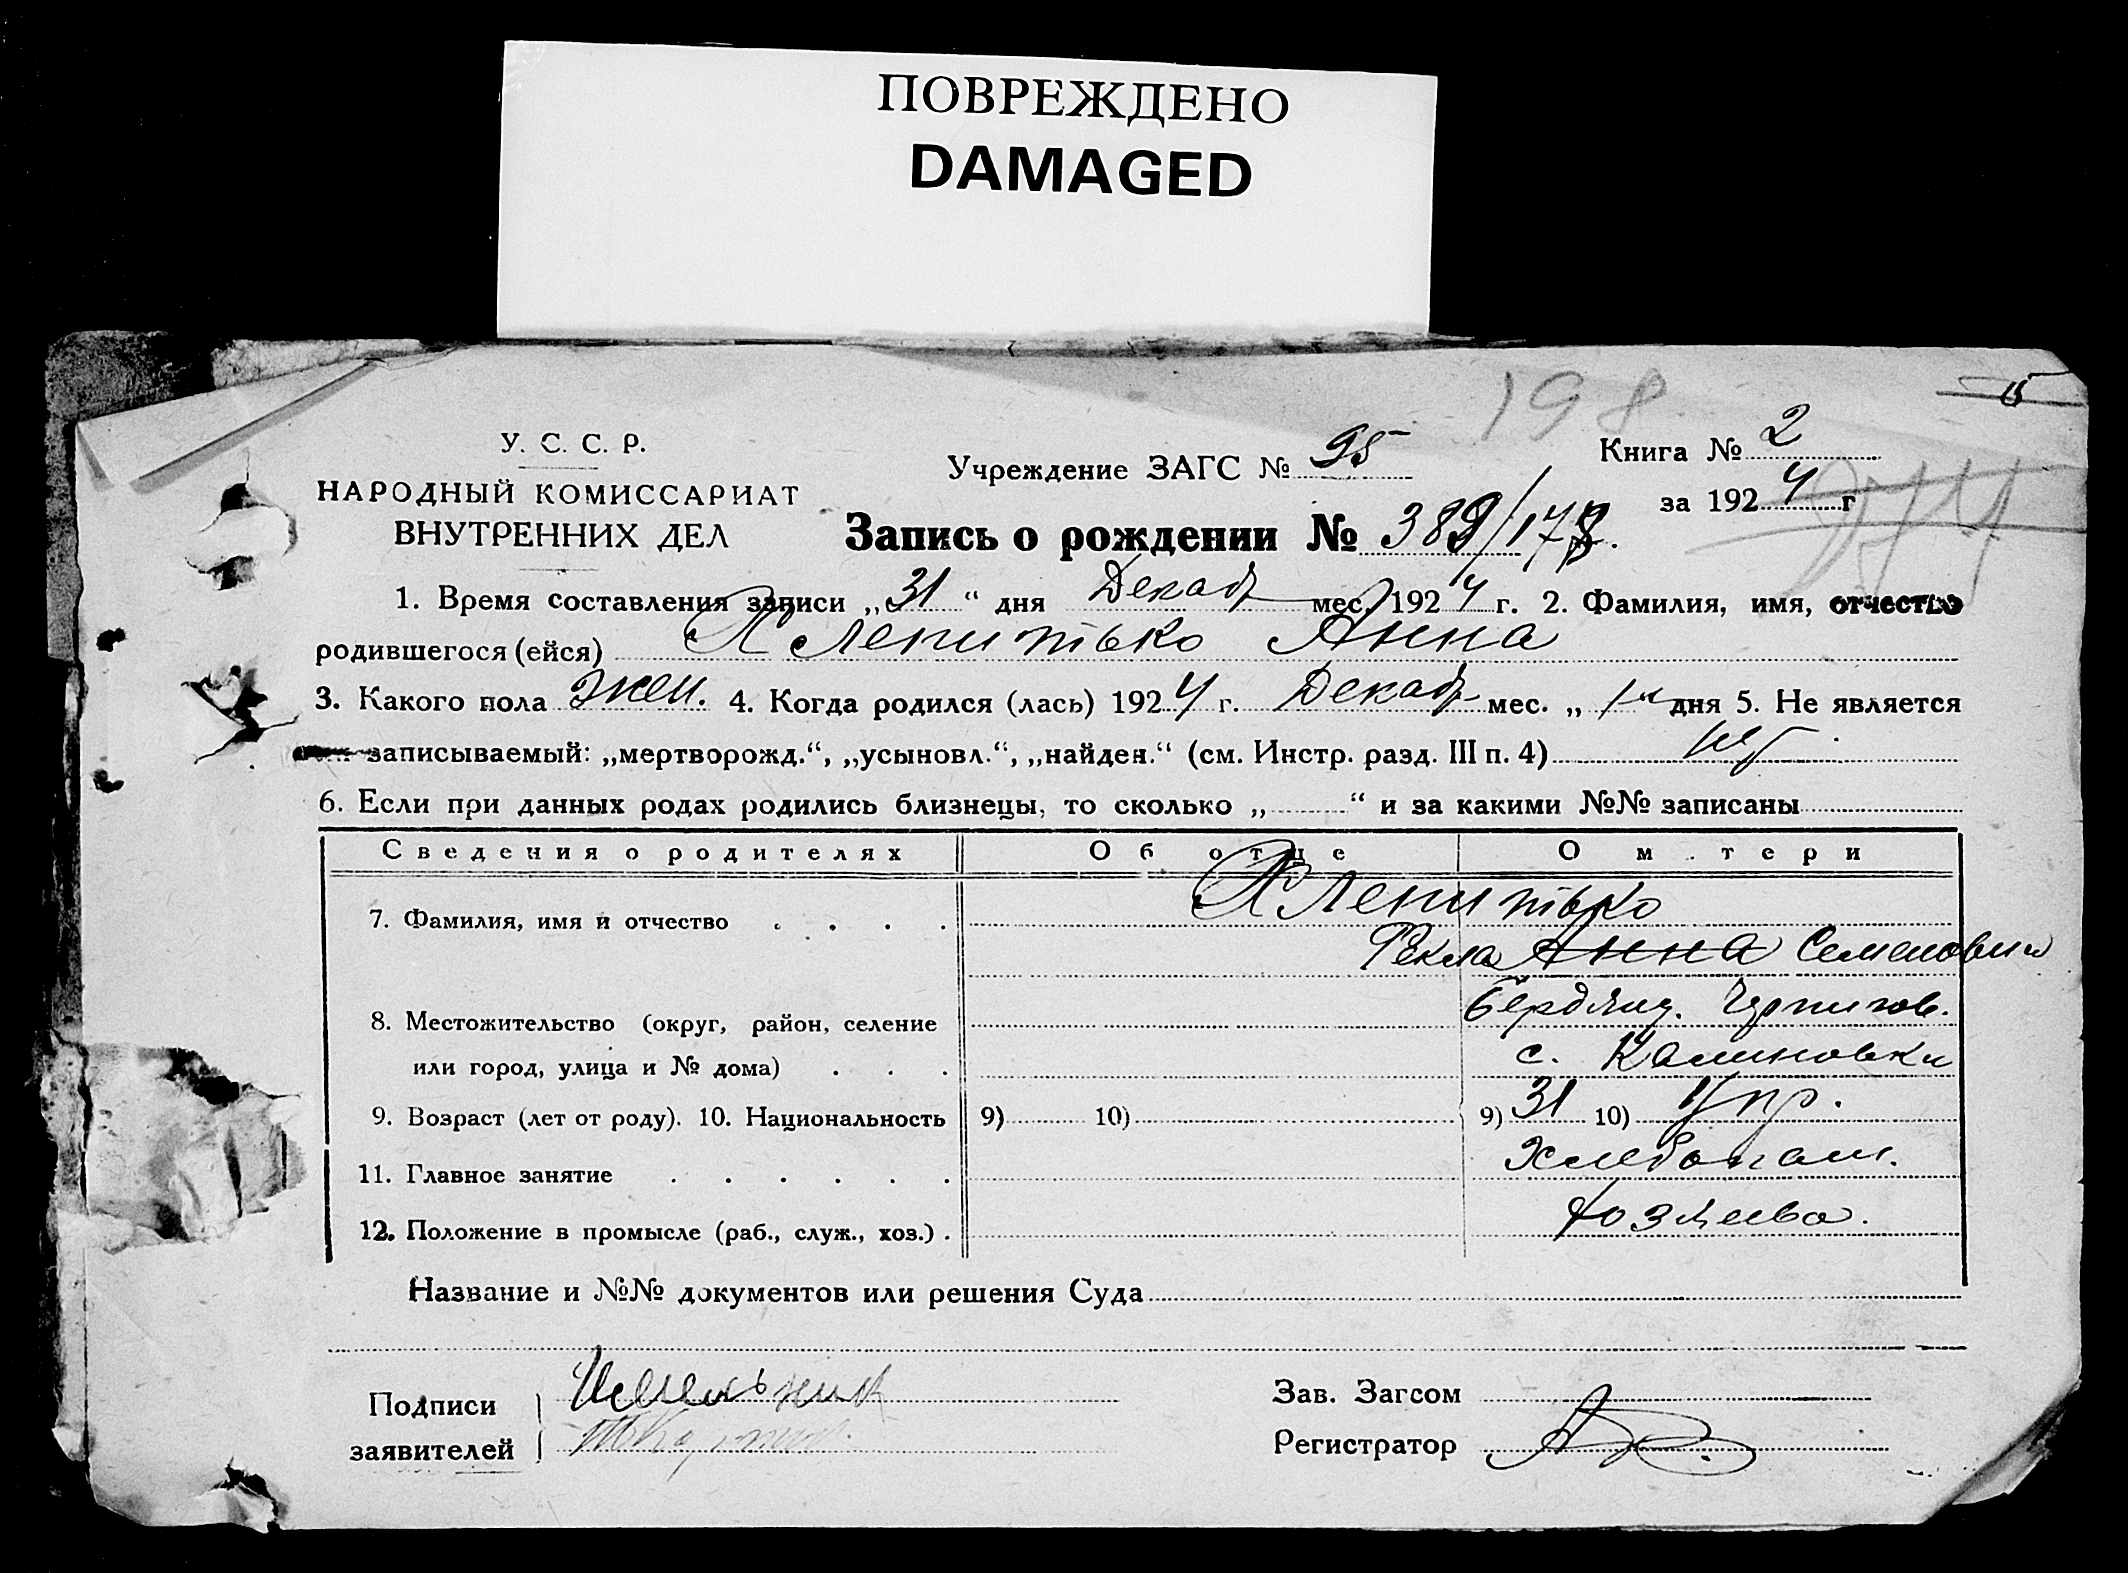 ПОВРЕЖДЕНО
DAMAGED
198
15
У. С. С. Р.
НАРОДНЫЙ КОМИССАРИАТ
ВНУТРЕННИХ ДЕЛ
Учреждение ЗАГС № 95
Книга № 2
за 1924 г
Запись о рождении № 389/178.
1. Время составления записи „31“ дня Декабр мес. 1924 г. 2. Фамилия, имя, отчество
родившегося (ейся) Клепитько Анна
3. Какого пола жен. 4. Когда родился (лась) 1924 г. Декабр мес. „1“ дня 5. Не является
записываемый: „мертворожд.“, „усыновл.“, „найден.“ (см. Инстр. разд. III п. 4)
6. Если при данных родах родились близнецы, то сколько „ “ и за какими №№ записаны
Сведения о родителях Об отце О м тери
7. Фамилия, имя и отчество . . . . Клепитько
Фекла Анна Семеновна
8. Местожительство (округ, район, селение
или город, улица и № дома) . . . с. Калиновки
9. Возраст (лет от роду). 10. Национальность 9) 10) 9) 31 10) Укр.
11. Главное занятие . . . . . . Хлебопаш.
12. Положение в промысле (раб., служ., хоз.) . Хозяева.
Название и №№ документов или решения Суда
Подписи
заявителей
Зав. Загсом
Регистратор